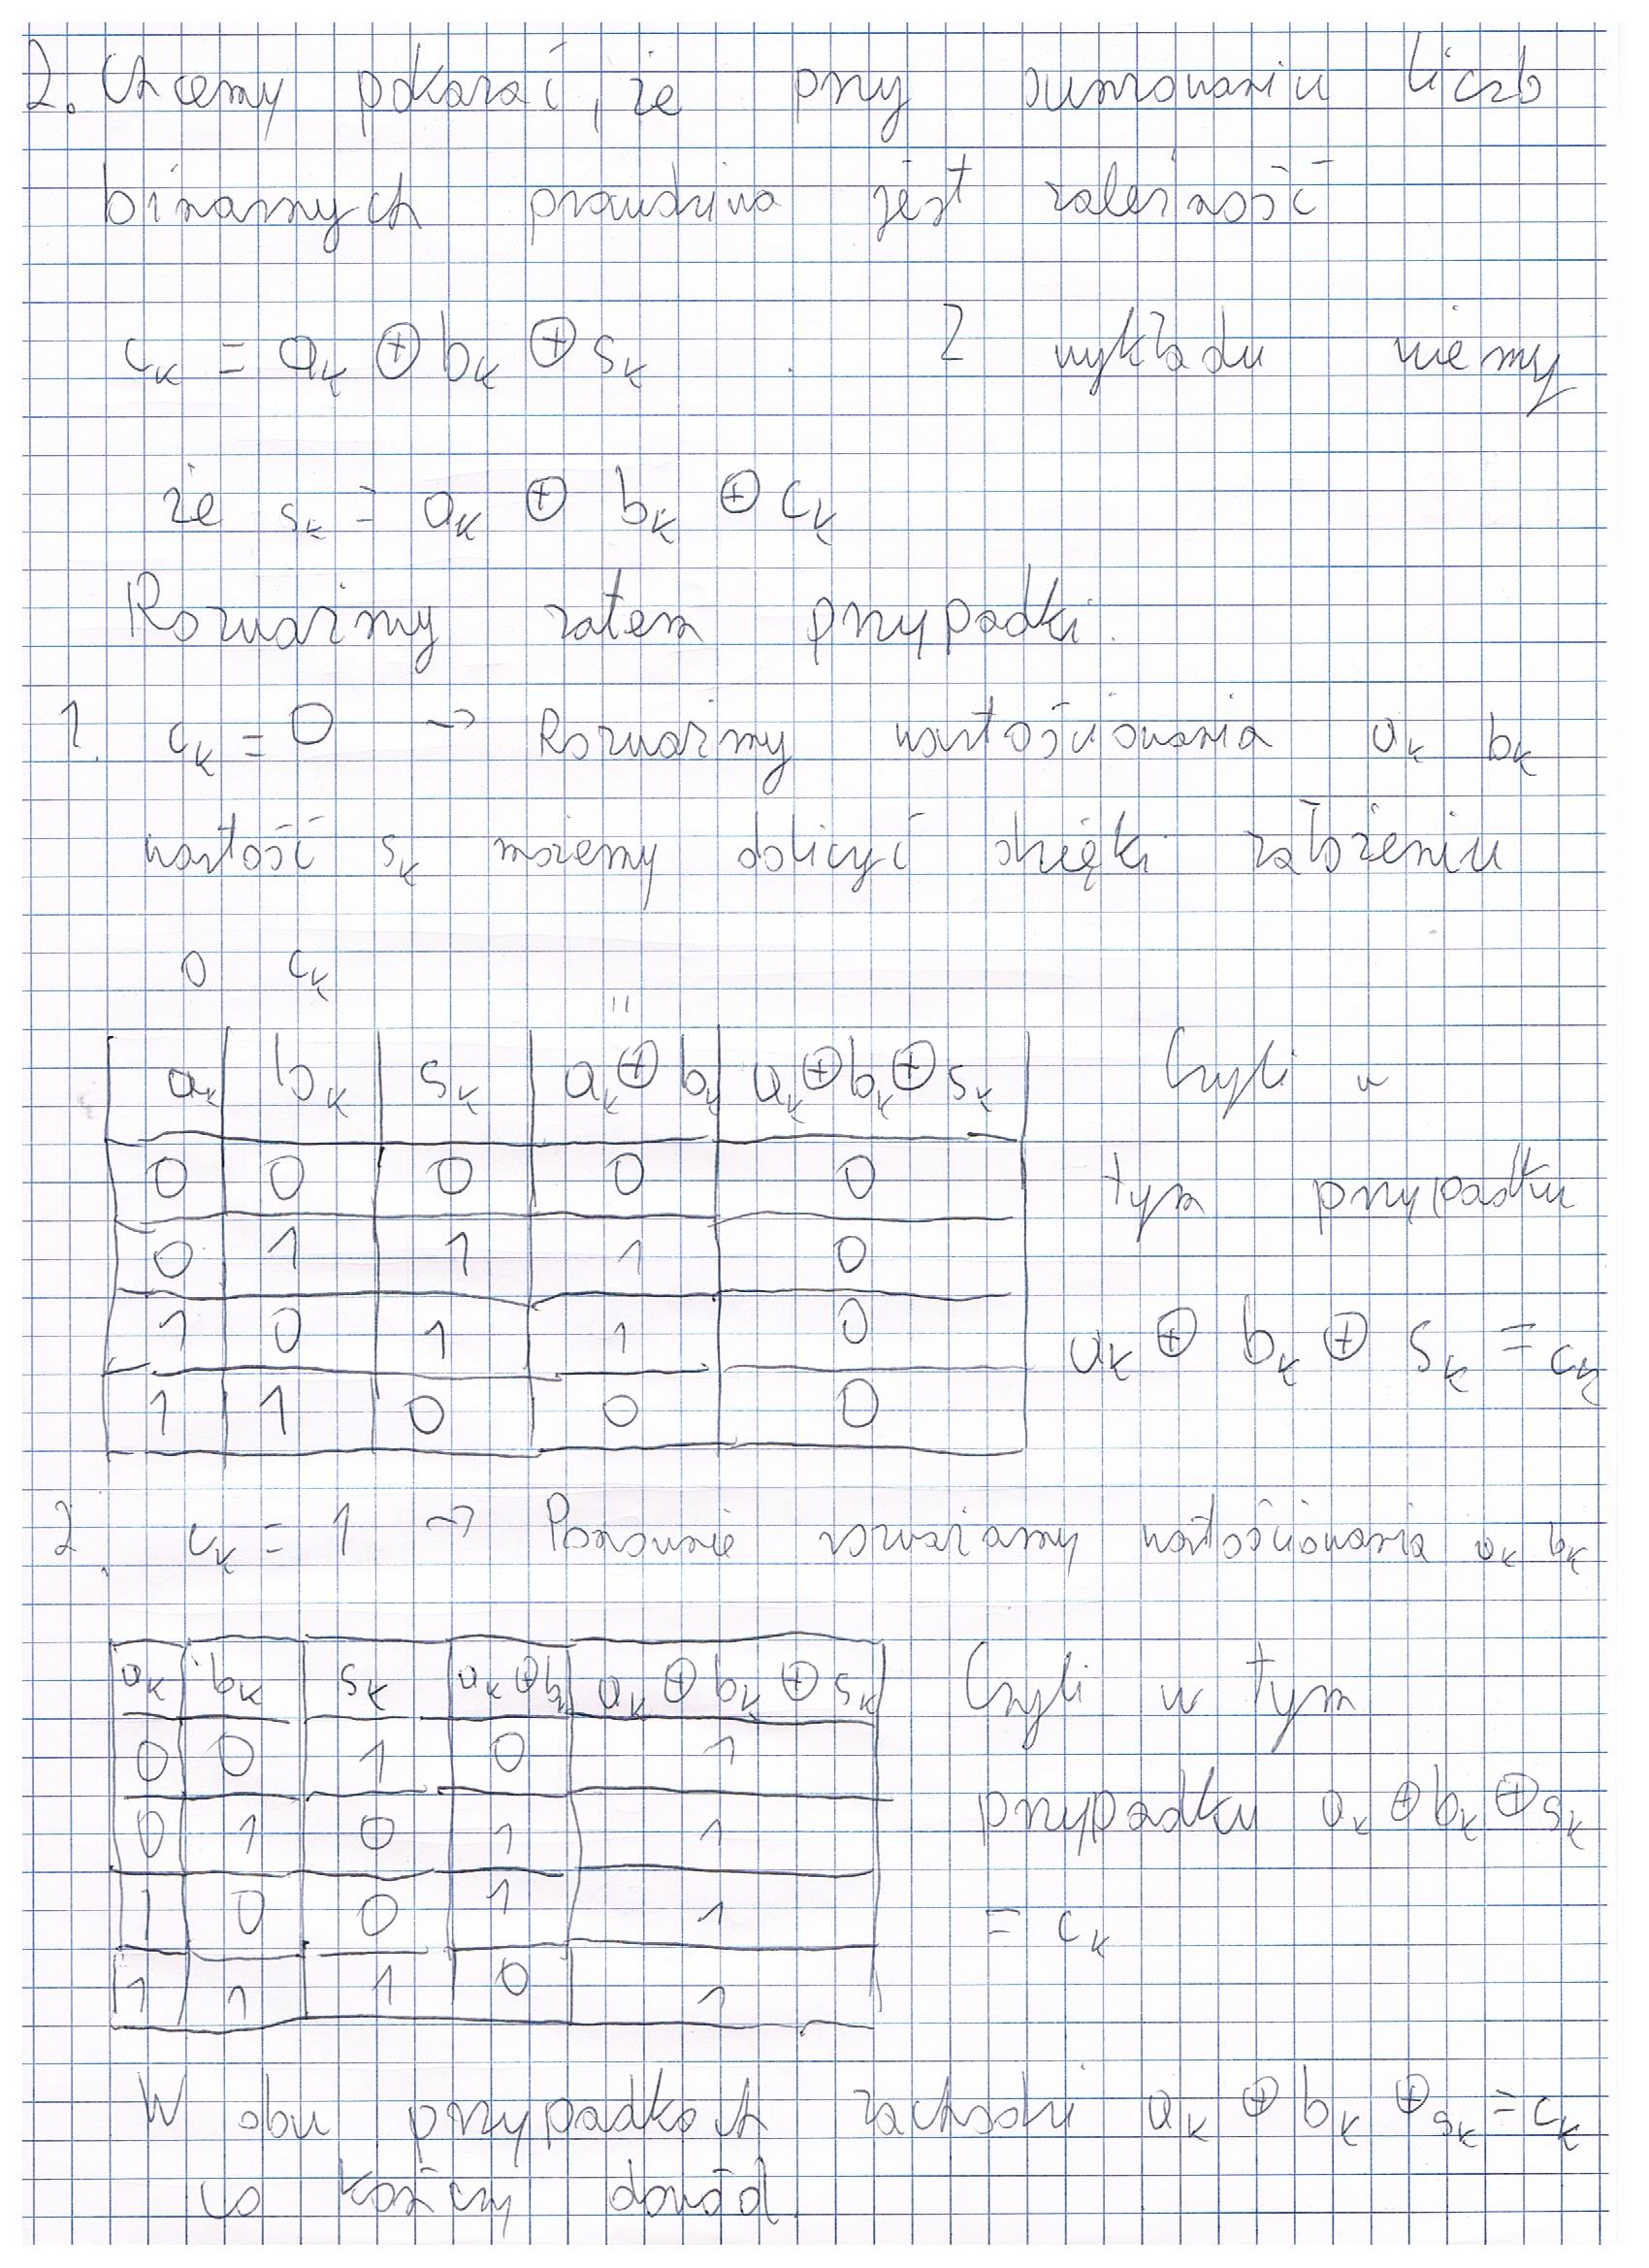 2. Chcemy pokazać, że przy sumowaniu liczb
binarnych prawdziwa jest zależność
c_k = a_k ⊕ b_k ⊕ s_k . Z wykładu wiemy
że s_k = a_k ⊕ b_k ⊕ c_k
Rozważmy zatem przypadki.
1. c_k = 0 → Rozważmy wartościowania a_k b_k
wartość s_k możemy policzyć dzięki założeniu
0 c_k
a_k b_k s_k a_k ⊕ b_k a_k ⊕ b_k ⊕ s_k
0 0 0 0 0
0 1 1 1 0
1 0 1 1 0
1 1 0 0 0
Czyli w
tym przypadku
a_k ⊕ b_k ⊕ s_k = c_k
2. c_k = 1 → Ponownie rozważamy wartościowania a_k b_k
a_k b_k s_k a_k ⊕ b_k a_k ⊕ b_k ⊕ s_k
0 0 1 0 1
0 1 0 1 1
1 0 0 1 1
1 1 1 0 1
Czyli w tym
przypadku a_k ⊕ b_k ⊕ s_k
= c_k
W obu przypadkach zachodzi a_k ⊕ b_k ⊕ s_k = c_k
co kończy dowód.